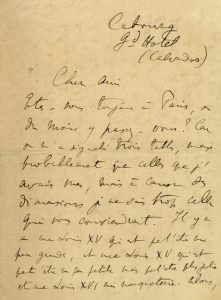 Cabourg
Gd Hotel
(Calvados)
Cher ami
Etes-vous toujours à Paris, ou
du moins y passez-vous? Car
on m'a signalé trois tables, mais
probablement que celles que j'
avais vues, mais à cause des
dimensions je ne sais trop celle
qui vous conviendrait. Il y a
une Louis XV qui est peut'être un
peu grande, et une Louis XV qui est
peut'être un peu petite mais peut'être plus jolie
et une Louis XVI en marqueterie. Alors,